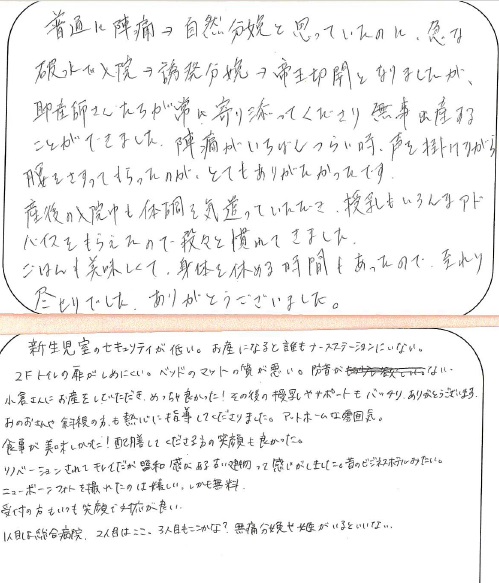 普通に陣痛→自然分娩と思っていたのに、急な
破水で入院→誘発分娩→帝王切開となりましたが、
助産師さんたちが常に寄り添ってくださり無事出産する
ことができました。陣痛がいちばんつらい時、声を掛けながら
腰をさすってもらったのが、とてもありがたかったです。
産後の入院中も体調を気遣っていただいて、授乳もいろんなアド
バイスをもらえたので段々と慣れてきました。
ごはんも美味しくて、身体を休める時間もあったので、至れり
尽せりでした。ありがとうございました。
新生児室のセキュリティが低い。お産になると誰もナースステーションにいない。
2Fトイレの扉がしめにくい。ベッドのマットの質が悪い。
小倉さんにお産をしていただき、めっちゃ良かった!その後の授乳やサポートもバッチリ、ありがとうございます。
みのおさんや斜視の方も熱心に指導してくださりました。アットホームな雰囲気。
食事が美味しかった!配膳してくださる方の笑顔も良かった。
リノベーションされてもしてだが昭和感がある古い建物って感じがしました。昔のビジネスホテルみたい。
ニューボーンフォトを撮れたのは嬉しい、しかも無料
受付の方もいつも笑顔で対応が良い。
1人目は総合病院、2人目はここ。3人目もここかな?無痛分娩や姫がいるといいな。